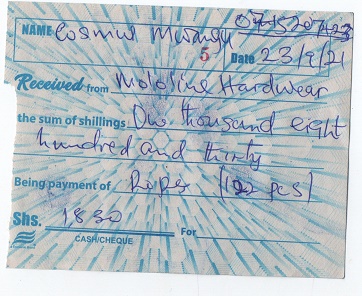 NAME Cosmus Mwangi
5 Date 23/9/21
Received from Mololine Hardwear
the sum of shillings One thousand eight
hundred and thirty
Being payment of Ropes ( pcs)
Shs. 1830 For
CASH/CHEQUE